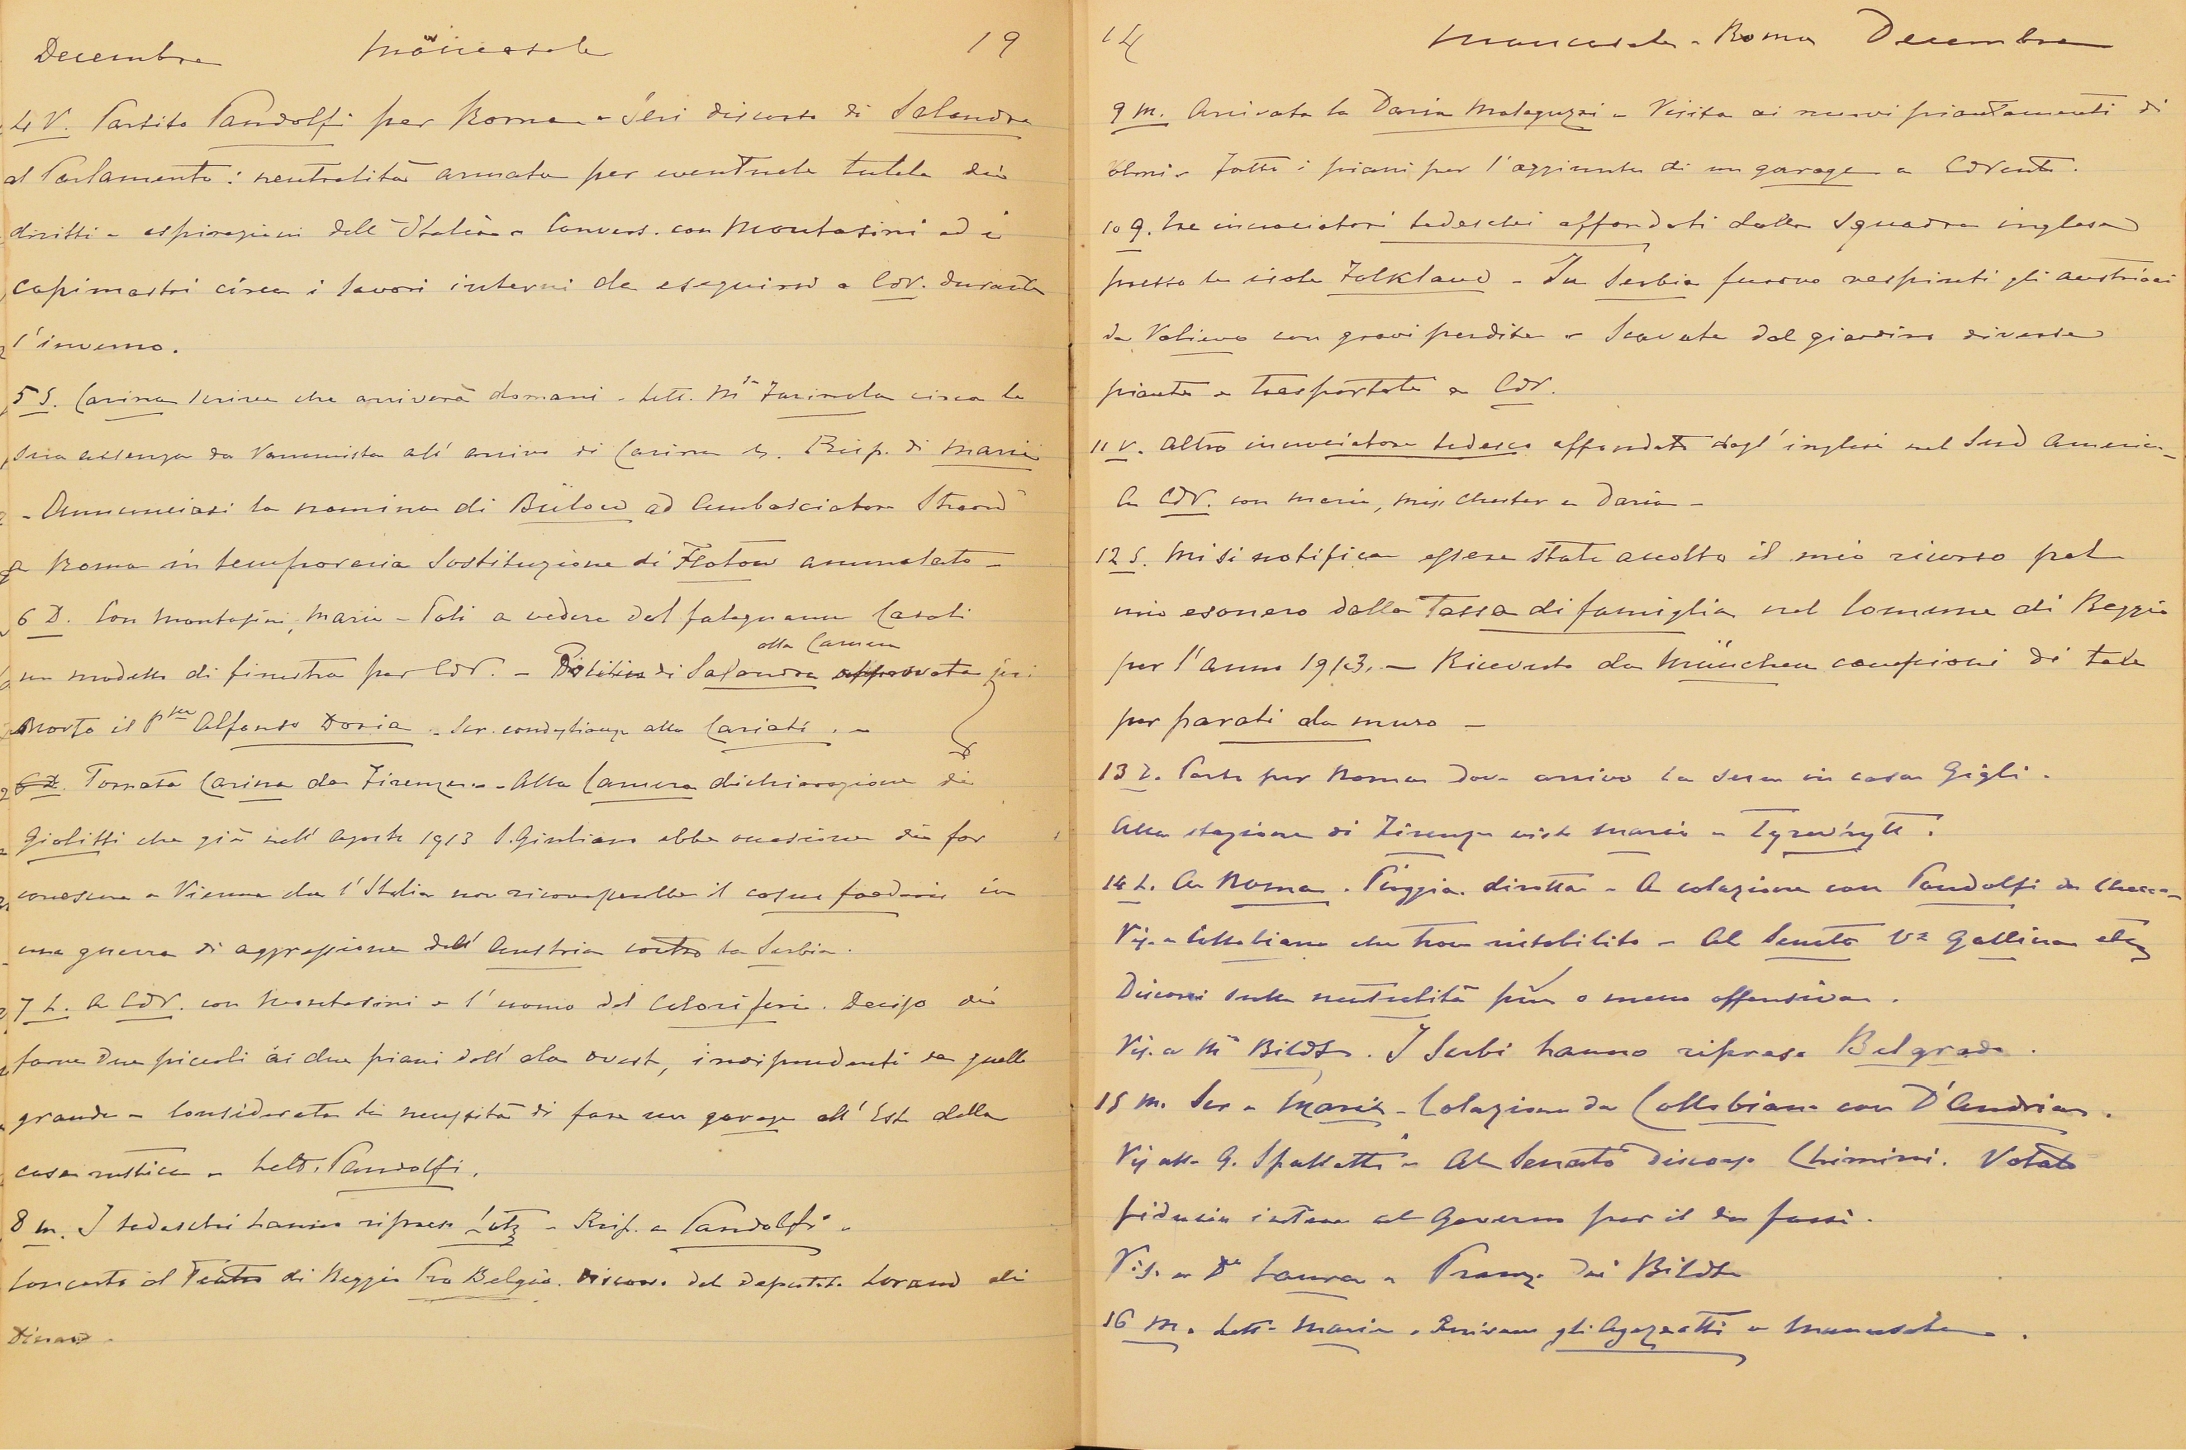 Decembre Mancasale 19
4 V. Partito Pandolfi per Roma - Ieri discorso di Salandra
al Parlamento: neutralità armata per eventuale tutela dei
diritti e aspirazioni dell'Italia - Convers. con Montasini ed i
capimastri circa i lavori interni da eseguirsi a CdV. durante
l'inverno.
5 S. Carina scrive che arriverà domani - Lett. Mse Farinola circa la
sua assenza da all'arrivo di Carina Risp. di Maria
- Annunciasi la nomina di Bülow ad Ambasciatore Straord
a Roma in temporaria sostituzione di Flotow ammalato -
6 D. Con Montasini, Maria - Poli a vedere dal falegname Casoli
alla Camera
un modello di finestra per CdV. - Politica di Salandra approvata ieri
Morto il Pse Alfonso Doria - Scr. condoglianze alla Cariati. -
6 D. Tornata Carina da Firenze - Alla Camera dichiarazione di
Giolitti che già nell'Agosto 1913 S. Giuliano ebbe occasione di far
conoscere a Vienna che l'Italia non riconoscerebbe il casus foederis in
una guerra di aggressione dell'Austria contro la Serbia.
7 L. A CdV. con Montasini e l'uomo dei Caloriferi. Deciso di
farne due piccoli ai due piani dell'ala ovest, indipendenti da quello
grande - Considerata la necessità di fare un garage all'Est della
casa rustica - Lett. Pandolfi.
8 M. I tedeschi hanno ripreso Lotz - Risp. a Pandolfi -
Concerto al Teatro di Reggio Pro Belgio. Discorso del Deputato Lorand di
Dinant -
14 Mancasale - Roma Decembre
9 M. Arrivata la Daria Malaguzzi - Visita ai nuovi piantamenti di
olmi - Fatti i piani per l'aggiunta di un garage a CdVento.
10 G. Tre incrociatori tedeschi affondati dalla Squadra inglese
presso le isole Falkland - In Serbia furono respinti gli austriaci
da Valievo con gravi perdite - Scavate dal giardino diverse
piante e trasportate a CdV.
11 V. Altro incrociatore tedesco affondato dagl'inglesi nel Sud America -
A CdV. con Maria, Miss Chester e Daria -
12 S. Mi si notifica essere stato accolto il mio ricorso pel
mio esonero dalla Tassa di famiglia nel Comune di Reggio
per l'anno 1913. - Ricevuto da München campioni di tele
per parati da muro -
13 D. Parto per Roma dove arrivo la sera in casa Gigli.
Alla stazione di Firenze visto Maria e Tyrwhytt.
14 L. A Roma. Pioggia dirotta - A colazione con Pandolfi da Checco -
Vis. a Collobiano che trovo ristabilito - Al Senato Va Gallina etc
Discorsi sulla neutralità più o meno offensiva.
Vis. a Me Bildt. I Serbi hanno ripreso Belgrado.
15 M. Scr. a Maria - Colazione da Collobiano con D'Andria.
Vis. alla G. Spalletti - Al Senato discorso Chimirri. Votata
fiducia intera al Governo per il da farsi.
Vis. a Da Laura - Pranzo dai Bildt
16 M. Lett. Maria. Arrivano gli Agazzotti a Mancasale.